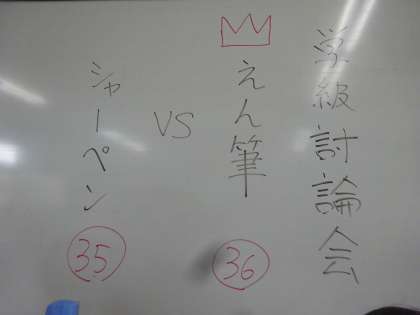 学級討論会
えん筆
36
VS
シャーペン
35